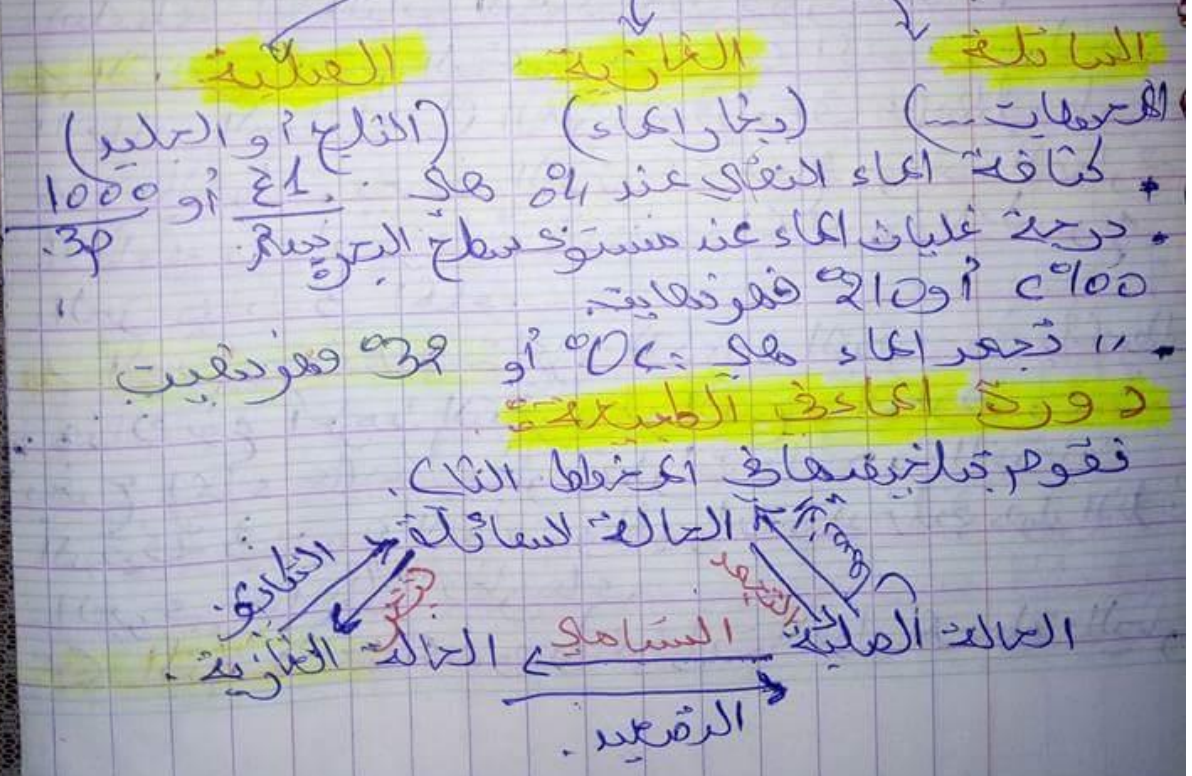 السائلة الغازية الصلبة
(المحيطات ....) (بخار الماء) (الثلج أو الجليد)
كثافة الماء النقي عند 4° هي 1g أو 1000
درجة غليان الماء عند مستوى سطح البحر
100°C أو 210° فهرنهايت.
" تجمد الماء هي : 0C° أو 32° فهرنهيت
دورة الماء في الطبيعة :
نقوم بتلخيصها في المخطط التالي.
الحالة السائلة
التكاثف التبخر التجمد
الحالة الصلبة السامي الحالة الغازية.
الترصعيد.